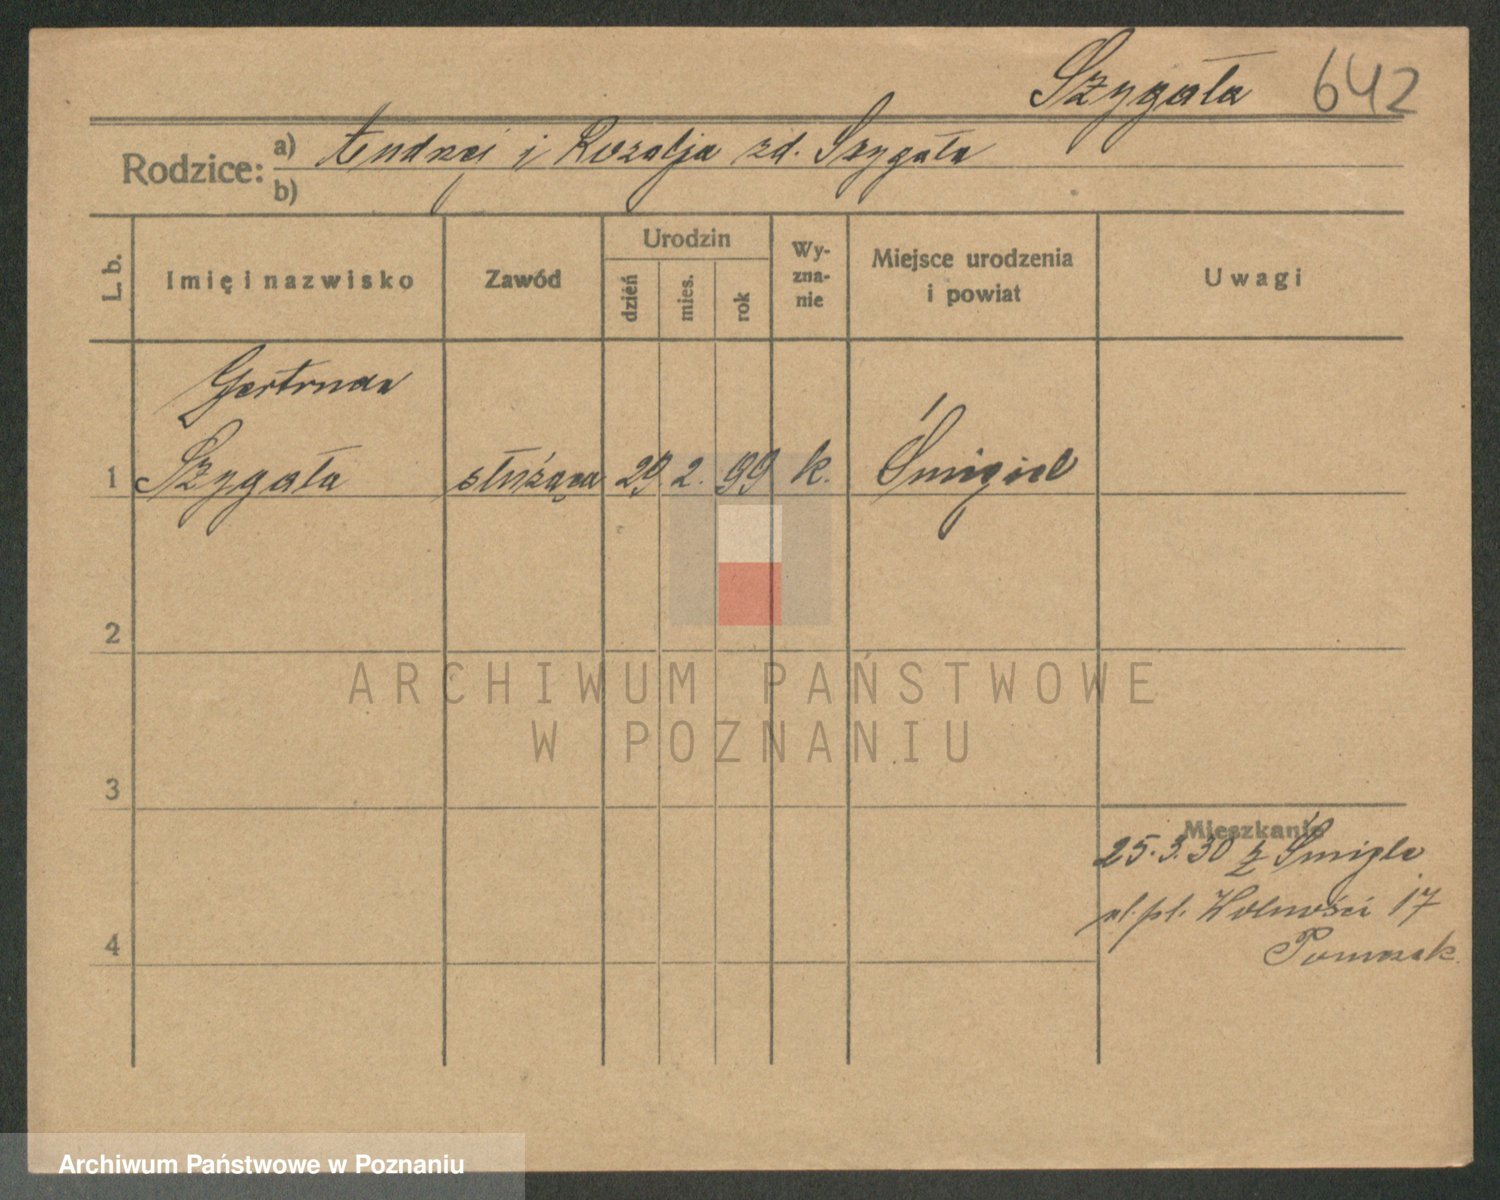 Szygała 642
Rodzice: a) Andrzej i Rozalja zd. Szygała
b)
L. b. Imię i nazwisko Zawód Urodzin dzień mies. rok Wyznanie Miejsce urodzenia i powiat Uwagi
Gertruda
1 Szygała służąca 29. 2. 99 k. Śmigiel
2
ARCHIWUM PAŃSTWOWE
W POZNANIU
3
Mieszkanie
25.3.30 z Śmigla
pl. Wolności 17
4
Archiwum Państwowe w Poznaniu